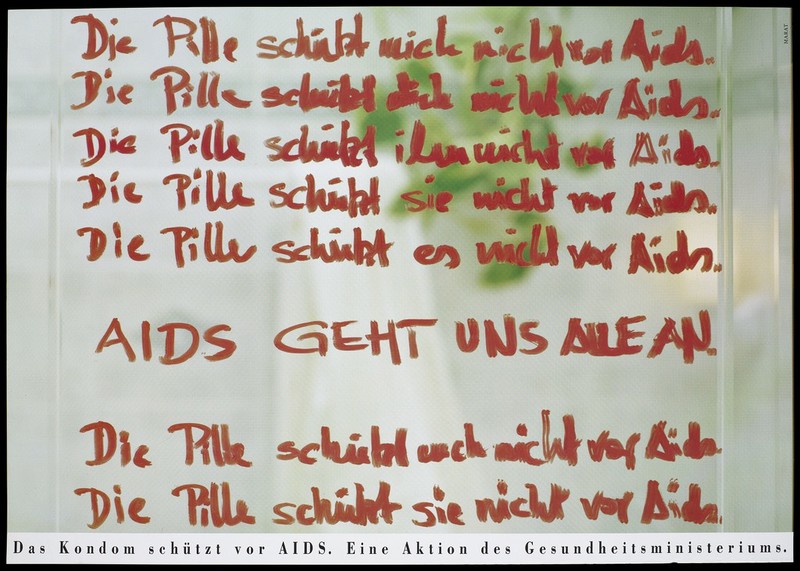 HARAT
Die Pille schützt mich nicht vor Aids.
Die Pille schützt dich nicht vor Aids.
Die Pille schützt ihn nicht vor Aids.
Die Pille schützt sie nicht vor Aids.
Die Pille schützt es nicht vor Aids.
AIDS GEHT UNS ALLE AN.
Die Pille schützt euch nicht vor Aids.
Die Pille schützt sie nicht vor Aids.
Das Kondom schützt vor AIDS. Eine Aktion des Gesundheitsministeriums.